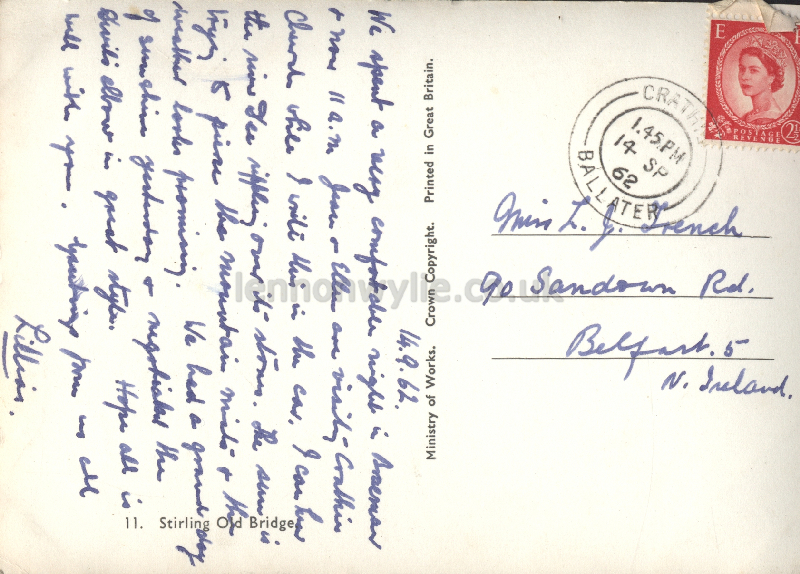 14.9.62.
We spent a very comfortable night in Braemar
& now 11 a.m. Jean & Ellen are visiting Crathie
Church while I write this in the car. I can hear
the river Dee rippling over its stones. The sun is
trying to pierce the mountain mists & the
weather looks promising. We had a grand day
of sunshine yesterday & negotiated the
Devil's elbow in great style. Hope all is
well with you. Greetings from us all
Lillias.
11. Stirling Old Bridge
Ministry of Works. Crown Copyright. Printed in Great Britain.
E R
POSTAGE
REVENUE
2½
CRATHIE
1.45 PM
14 SP
62
BALLATER
Miss L. J. French
90 Sandown Rd.
Belfast. 5
N. Ireland.
lennonwylie.co.uk